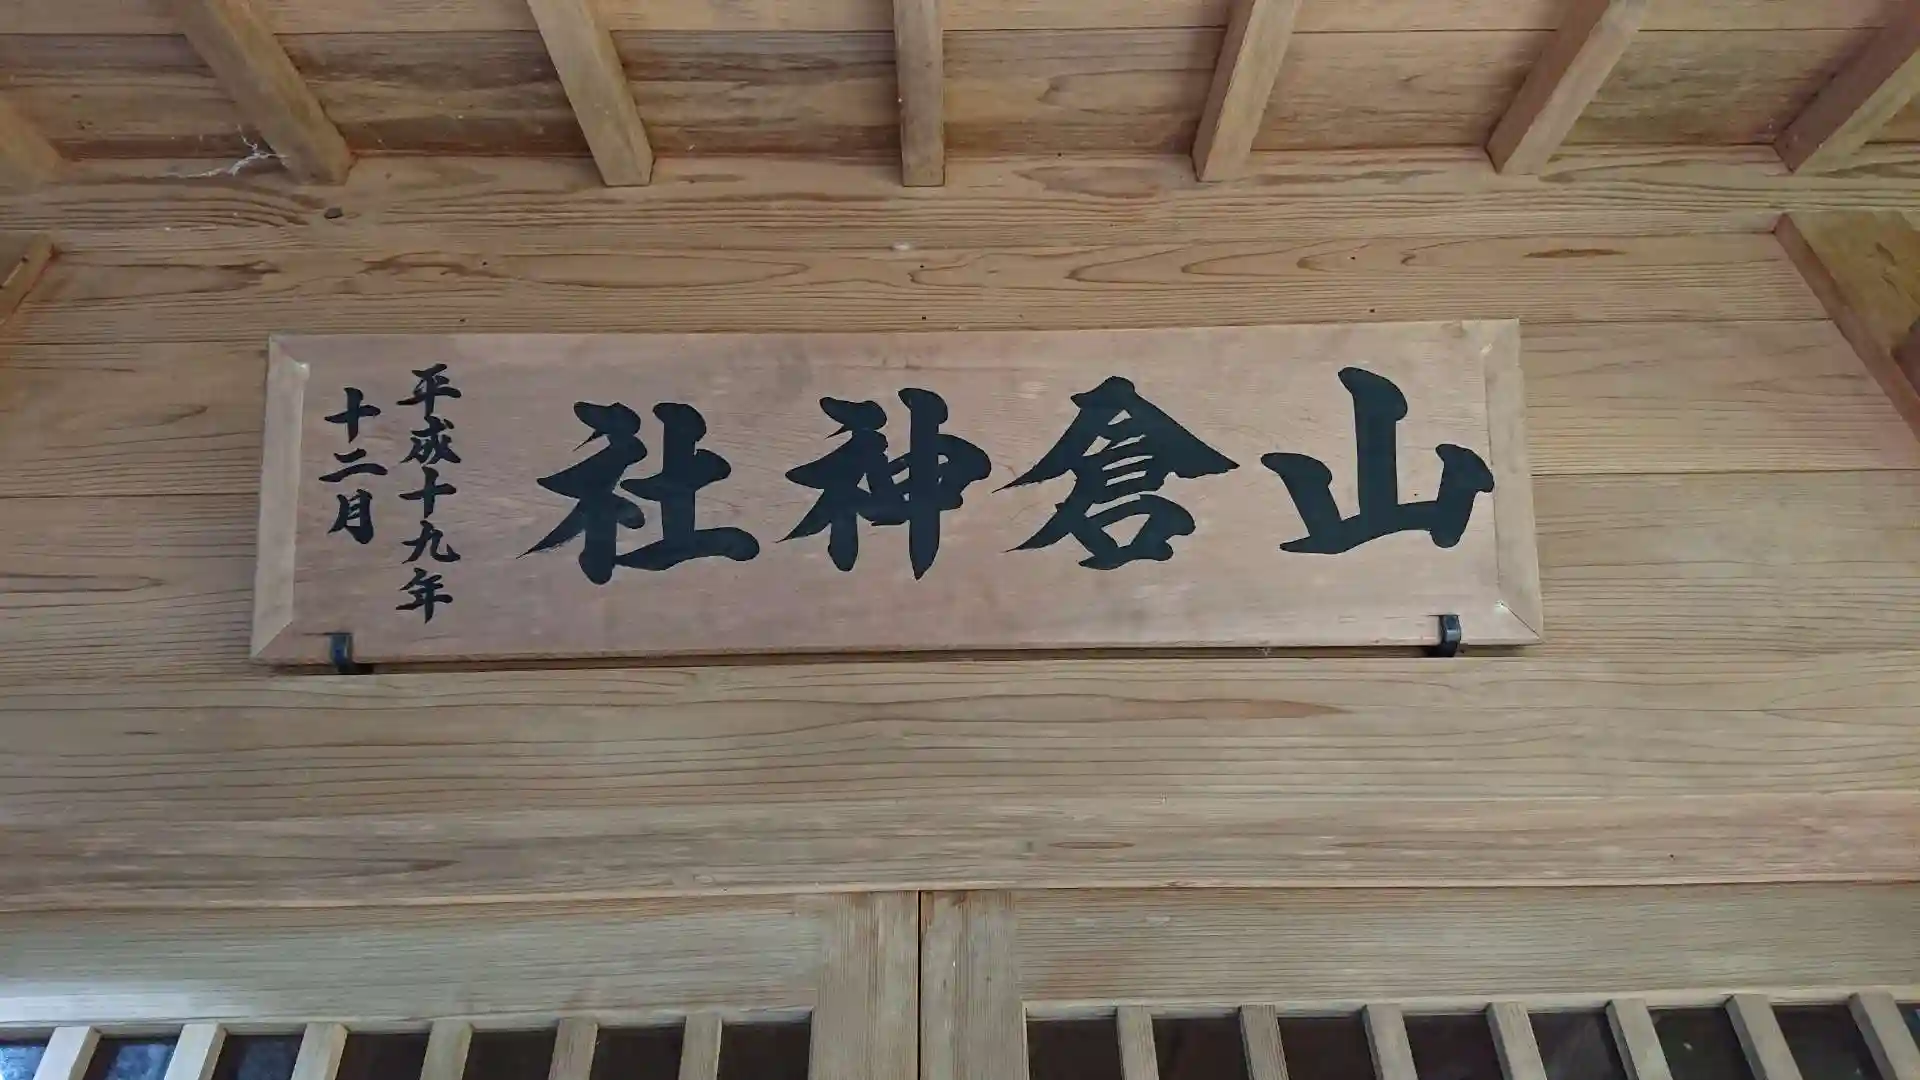 山倉神社
平成十九年
十二月